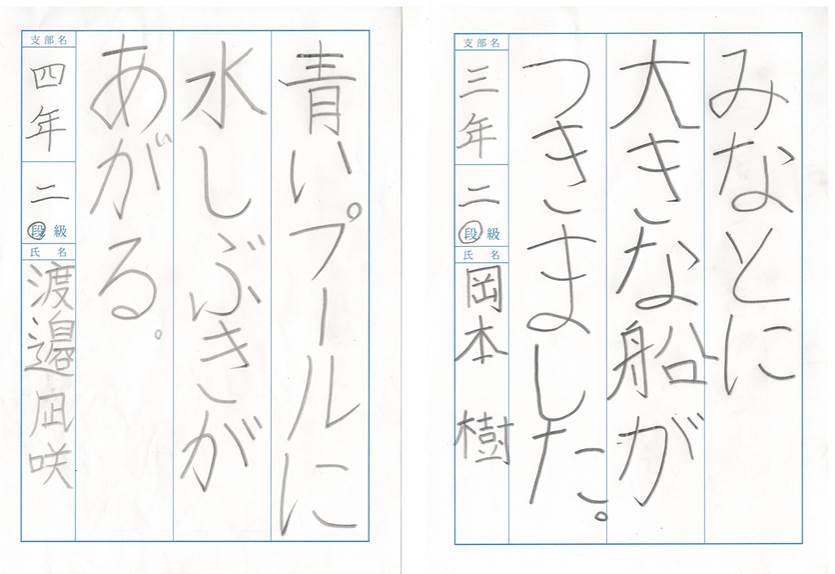 みなとに
大きな船が
つきました。
支部名
三年
二
段級
氏名
岡本 樹
青いプールに
水しぶきが
あがる。
支部名
四年
二
段級
氏名
渡邉凪咲